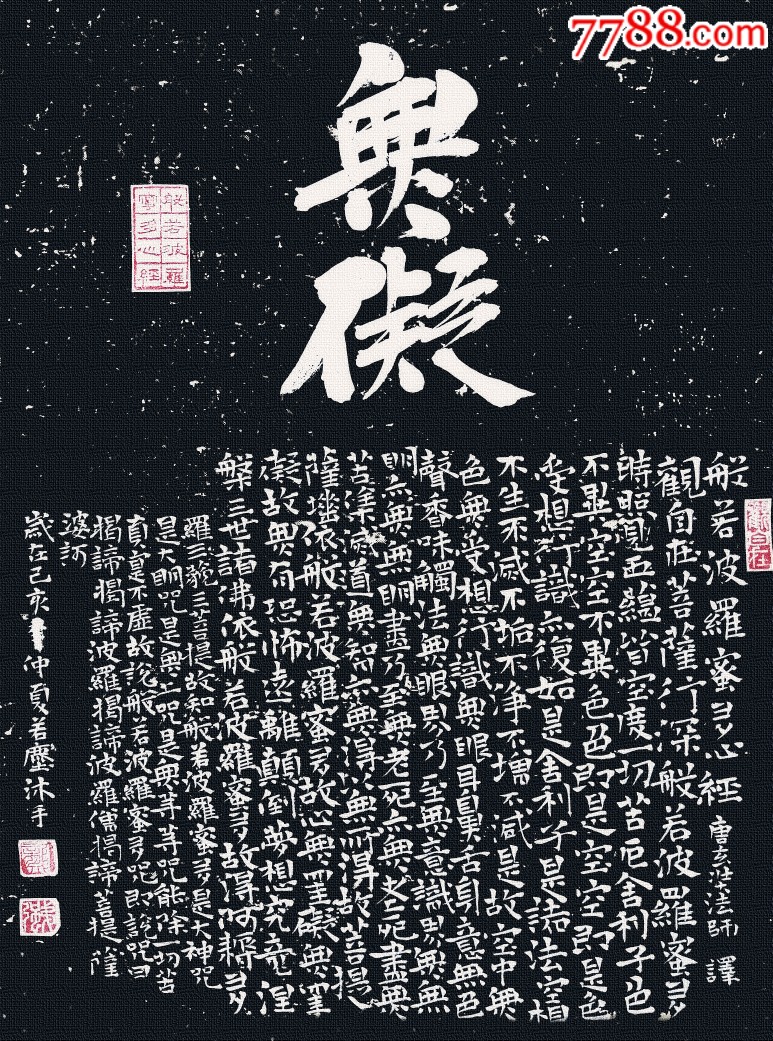 7788.com
無礙
般若波羅
蜜多心經
觀自在
般若波羅蜜多心經 唐玄奘法師譯
觀自在菩薩行深般若波羅蜜多
時照見五蘊皆空度一切苦厄舍利子色
不異空空不異色色即是空空即是色
受想行識亦復如是舍利子是諸法空相
不生不滅不垢不淨不增不減是故空中無
色無受想行識無眼耳鼻舌身意無色
聲香味觸法無眼界乃至無意識界無無
明亦無無明盡乃至無老死亦無老死盡無
苦集滅道無智亦無得以無所得故菩提
薩埵依般若波羅蜜多故心無罣礙無罣
礙故無有恐怖遠離顛倒夢想究竟涅
槃三世諸佛依般若波羅蜜多故得阿耨多
羅三藐三菩提故知般若波羅蜜多是大神咒
是大明咒是無上咒是無等等咒能除一切苦
真實不虛故說般若波羅蜜多咒即說咒曰
揭諦揭諦波羅揭諦波羅僧揭諦菩提薩
婆訶
歲在己亥仲夏若塵沐手